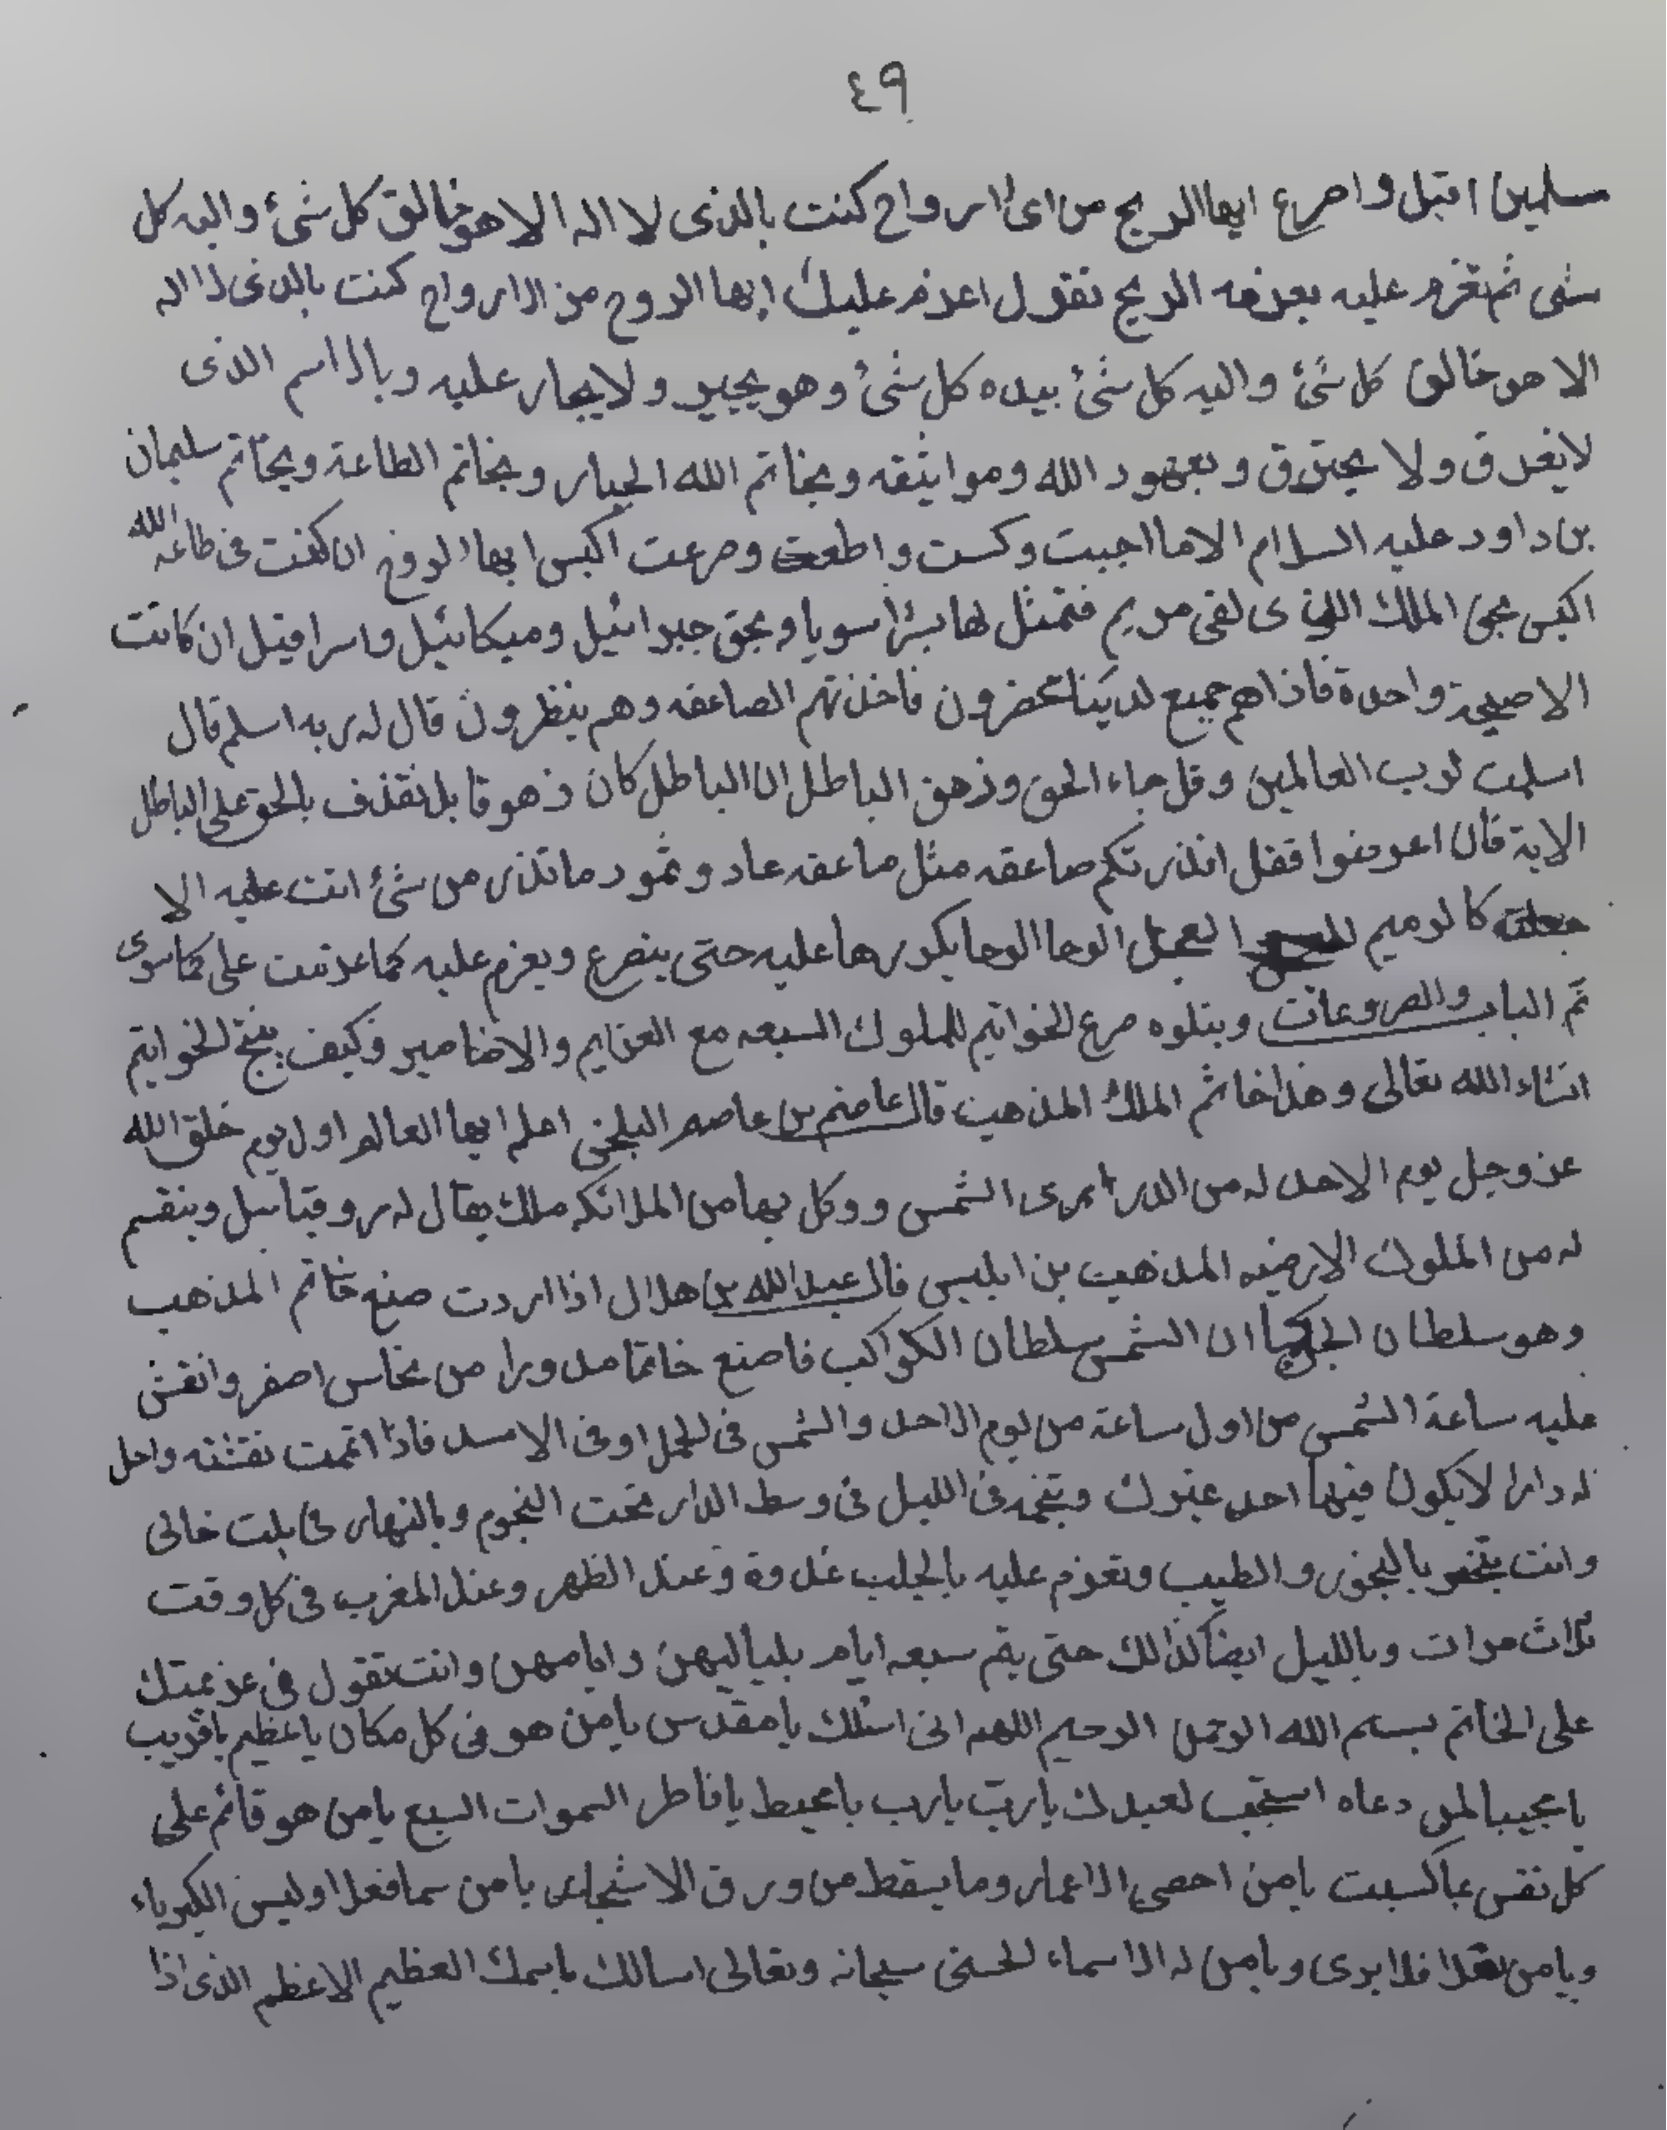 ٤٩
سلمين اقبل واصرع ايها الريح من اى الارواح كنت بالذى لا اله الا هو خالق كل شئ واليه كل
شى ثم تعزم عليه بعزمه الريح تقول اعزم عليك ايها الروح من الارواح كنت بالذى لا اله
الا هو خالق كل شئ واليه كل شئ بيده كل شئ وهو يجير ولا يجار عليه وبالاسم الذى
لا يغرق ولا يحترق وبعهود الله ومواثيقه وبخاتم الله الجبار وبخاتم الطاعة وبخاتم سليمان
بن داود عليه السلام الاما اجبت وكست واطعت وصرعت اكبس ايها الروح ان كنت فى طاعه الله
اكبس بحق الملك الذى لقى مريم فتمثل لها بشرا سويا وبحق جبرائيل وميكائيل واسرافيل ان كانت
الا صيحة واحدة فاذاهم جميع لدينا محضرون فاخذتهم الصاعقه وهم ينظرون قال له ربه اسلم قال
اسلمت لرب العالمين وقل جاء الحق وزهق الباطل ان الباطل كان زهوقا بل نقذف بالحق على الباطل
الاية فان اعرضوا فقل انذرتكم صاعقه مثل صاعقه عاد وثمود ماتذر من شئ اتت عليه الا
جعلته كالرميم العجل الوحا الوحا يكررها عليه حتى ينصرع ويعزم عليه كما عزمت على
تم الباب والصروعات ويتلوه صرع الخواتيم للملوك السبعه مع العزايم والاضامير وكيف ينتج الخواتيم
انشاء الله تعالى وهذا خاتم الملك المذهب قال عاصم بن عاصم البلخى اعلم ايها العالم اول يوم خلق الله
عز وجل يوم الاحد له من الدرارى الشمس ووكل بها من الملائكه ملك يقال له روقيائيل وينقسم
له من الملوك الارضيه المذهب بن ابليس قال عبد الله بن هلال اذا اردت صنع خاتم المذهب
وهو سلطان ان الشمس سلطان الكواكب فاصنع خاتما مدورا من نحاس اصفر وانقش
عليه ساعة الشمس من اول ساعة من يوم الاحد والشمس فى الحمل او فى الاسد فاذا اتممت نقشته واخل
له دارا لا يكون فيها احد غيرك وتنجمه فى الليل فى وسط الدار تحت النجوم وبالنهار فى بيت خالى
وانت بالبخور والطيب وتعزم عليه بالجلب غدوة وعند الظهر وعند المغرب فى كل وقت
ثلاث مرات وبالليل ايضا كذالك حتى يتم سبعه ايام بلياليهن وايامهن وانت تقول فى عزيمتك
على الخاتم بسم الله الرحمن الرحيم اللهم انى اسئلك يا مقدس يا من هو فى كل مكان يا عظيم يا قريب
يا مجيبا لمن دعاه استجب لعبدك يا رب يا رب يا محيط يا فاطر السموات السبع يا من هو قائم على
كل نفس بما كسبت يا من احصى الاعمار وما يسقط من ورق الاشجار يا من سما فعلا وليس الكبرياء
ويا من فلا يرى ويا من له الاسماء الحسنى سبحانه وتعالى اسالك باسمك العظيم الاعظم الذى اذا